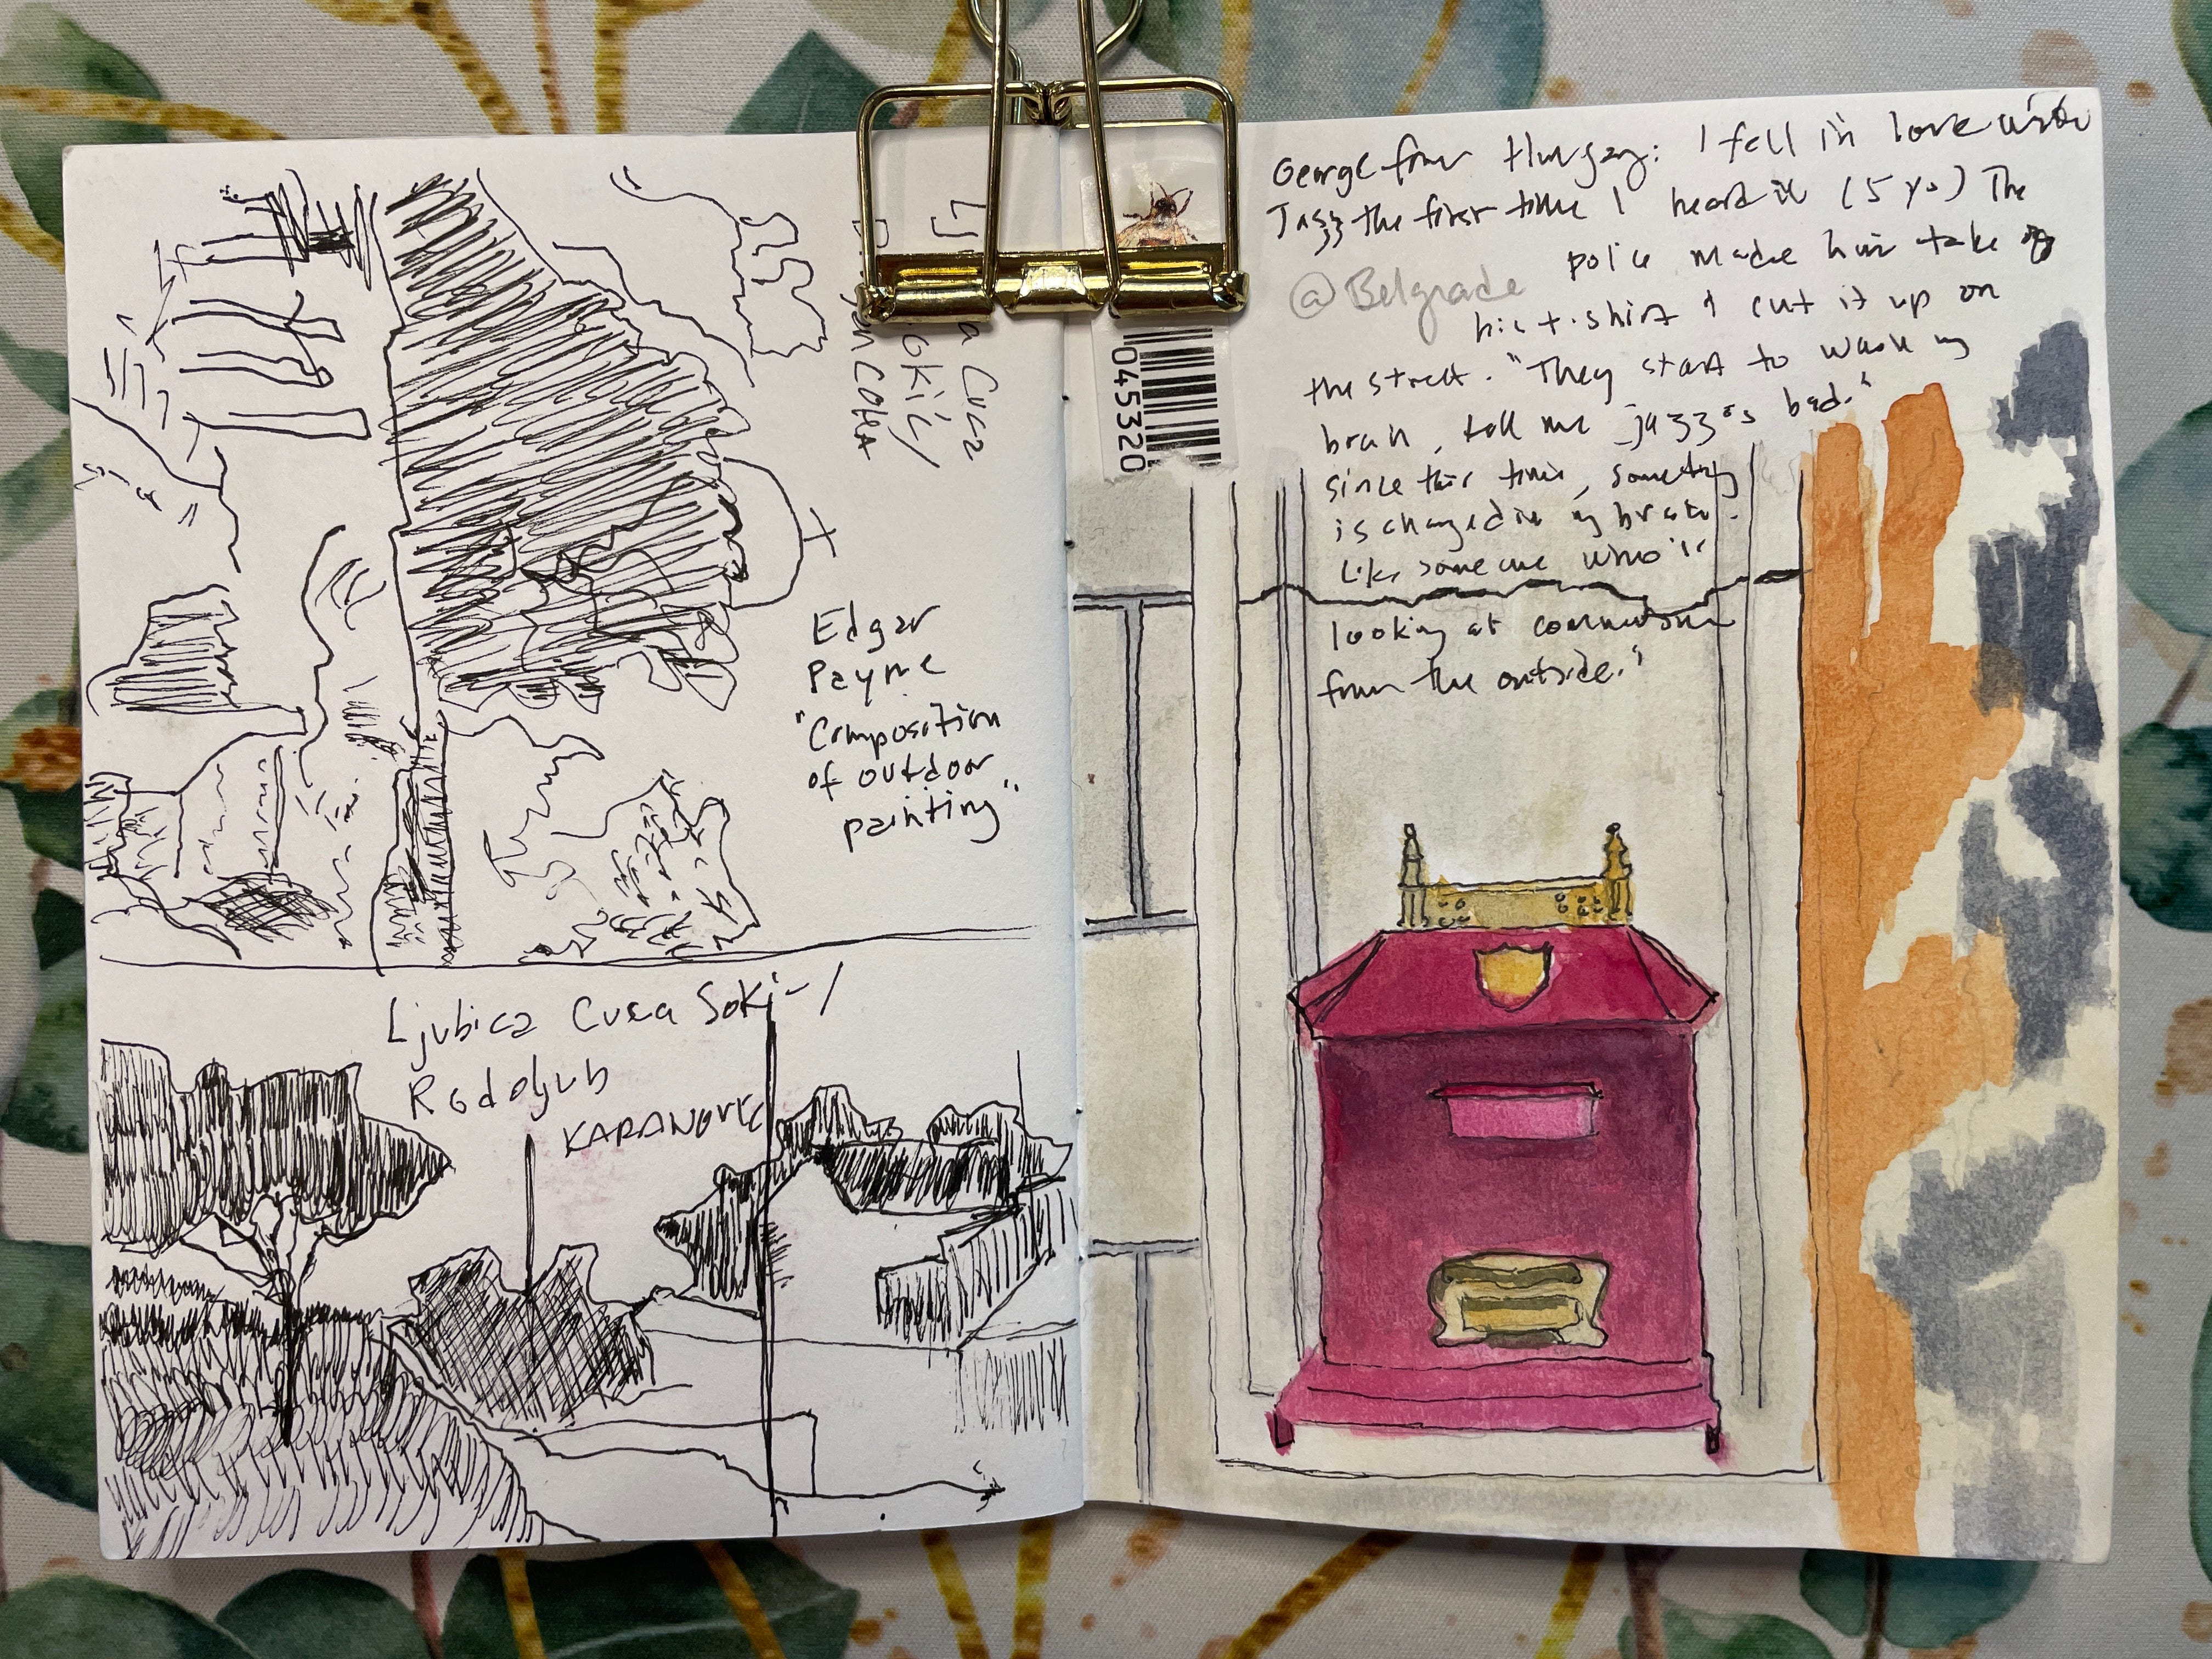 Edgar
Payne
"Composition
of outdoor
painting"
Ljubica Cuca Soki
Rodoljub
KARANOVIC
a Cuca
okić/
045320
George from Hungary: I fell in love with
Jazz the first time I heard it (5 yo) The
police made him take off
@Belgrade
his t-shirt & cut it up on
the street. "They start to wash my
brain, tell me jazz is bad."
since this time, something
is changed in my brain.
Like someone who is
looking at communism
from the outside."